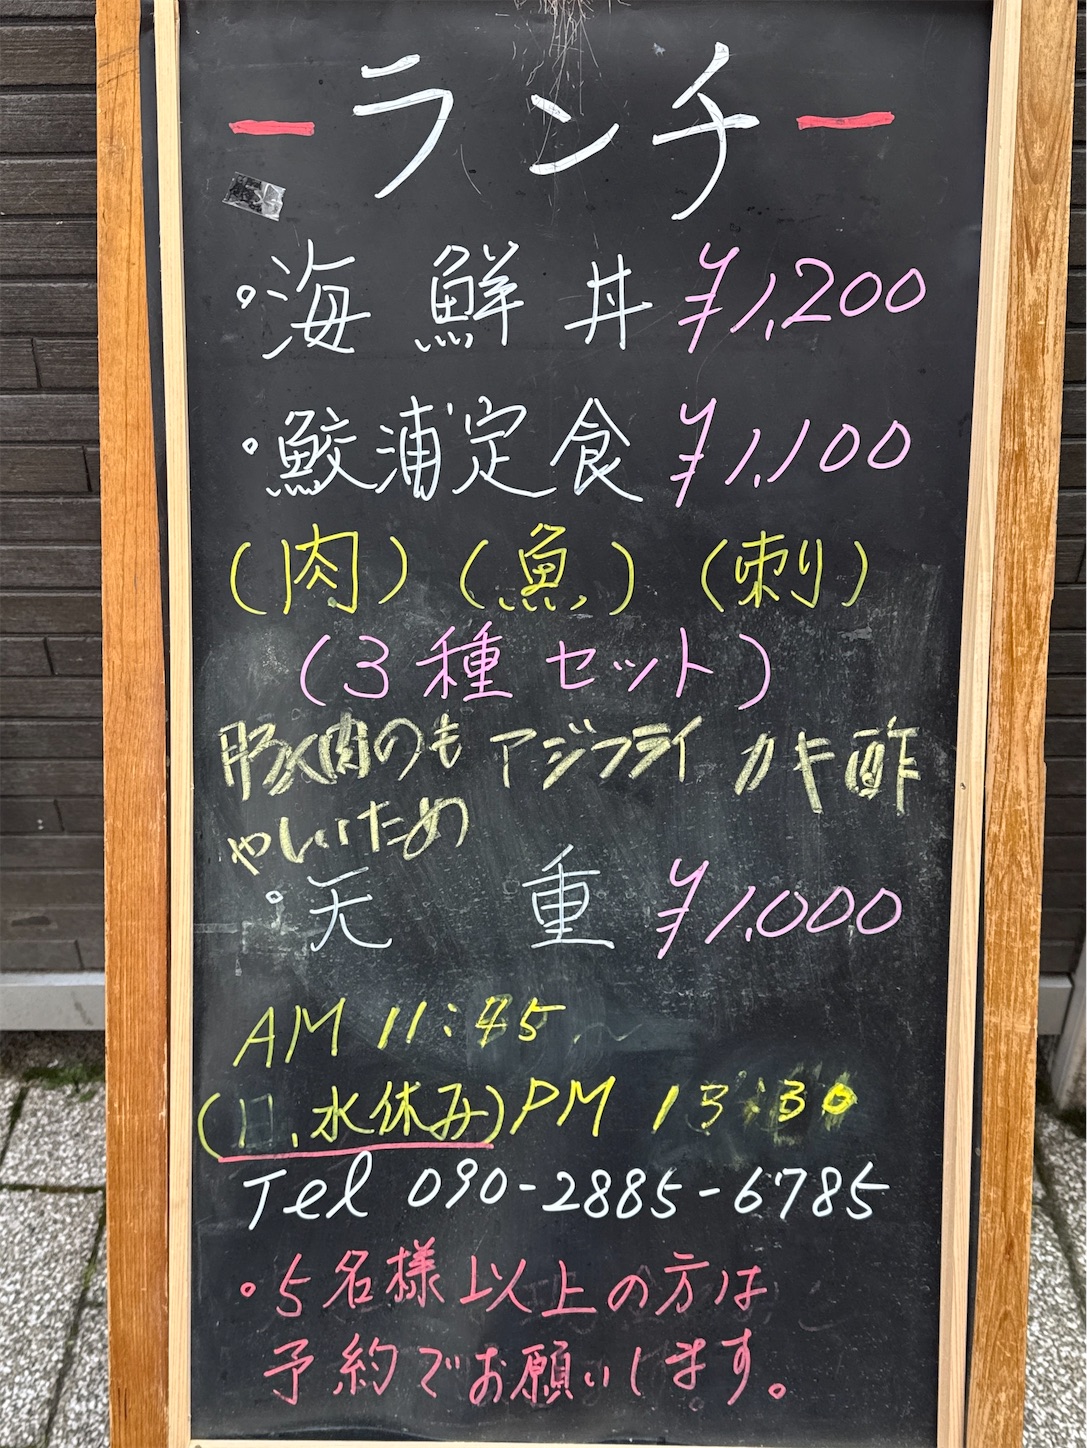 ーランチー
・海鮮丼 ¥1,200
・鮫浦定食 ¥1,100
(肉) (魚) (刺)
(3種セット)
豚肉のも アジフライ カキ酢
やしいため
・天 重 ¥1,000
AM 11:45 ~
(日、水休み) PM 13:30
Tel 090-2885-6785
・5名様以上の方は
予約でお願いします。